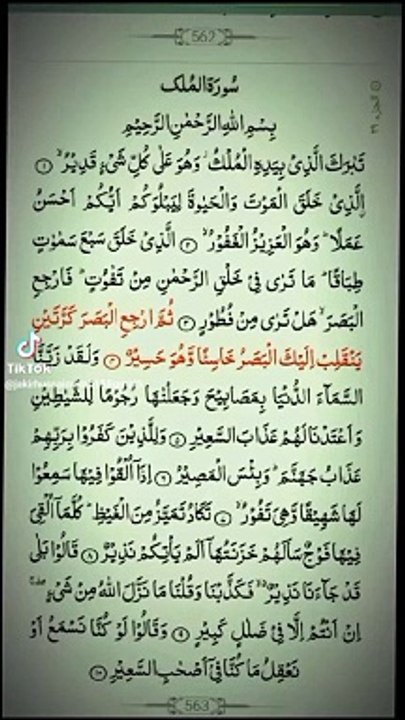 562
سُورَةُ الْمُلْك
بِسْمِ اللهِ الرَّحْمٰنِ الرَّحِيْمِ
تَبٰرَكَ الَّذِىْ بِيَدِهِ الْمُلْكُ ۫ وَهُوَ عَلٰى كُلِّ شَىْءٍ قَدِيْرُ ۙ ﴿١﴾
الَّذِىْ خَلَقَ الْمَوْتَ وَالْحَيٰوةَ لِيَبْلُوَكُمْ اَيُّكُمْ اَحْسَنُ
عَمَلًا ؕ وَهُوَ الْعَزِيْزُ الْغَفُوْرُ ۙ ﴿٢﴾ الَّذِىْ خَلَقَ سَبْعَ سَمٰوٰتٍ
طِبَاقًا ؕ مَا تَرٰى فِىْ خَلْقِ الرَّحْمٰنِ مِنْ تَفٰوُتٍ ؕ فَارْجِعِ
الْبَصَرَ ۙ هَلْ تَرٰى مِنْ فُطُوْرٍ ﴿٣﴾ ثُمَّ ارْجِعِ الْبَصَرَ كَرَّتَيْنِ
يَنْقَلِبْ اِلَيْكَ الْبَصَرُ خَاسِئًا وَّهُوَ حَسِيْرٌ ﴿٤﴾ وَلَقَدْ زَيَّنَّا
السَّمَآءَ الدُّنْيَا بِمَصَابِيْحَ وَجَعَلْنٰهَا رُجُوْمًا لِّلشَّيٰطِيْنِ
وَاَعْتَدْنَا لَهُمْ عَذَابَ السَّعِيْرِ ﴿٥﴾ وَلِلَّذِيْنَ كَفَرُوْا بِرَبِّهِمْ
عَذَابُ جَهَنَّمَ ؕ وَبِئْسَ الْمَصِيْرُ ﴿٦﴾ اِذَاۤ اُلْقُوْا فِيْهَا سَمِعُوْا
لَهَا شَهِيْقًا وَّهِىَ تَفُوْرُ ۙ ﴿٧﴾ تَكَادُ تَمَيَّزُ مِنَ الْغَيْظِ ؕ كُلَّمَاۤ اُلْقِىَ
فِيْهَا فَوْجٌ سَاَلَهُمْ خَزَنَتُهَاۤ اَلَمْ يَاْتِكُمْ نَذِيْرٌ ﴿٨﴾ قَالُوْا بَلٰى
قَدْ جَآءَنَا نَذِيْرٌ ۙ فَكَذَّبْنَا وَقُلْنَا مَا نَزَّلَ اللهُ مِنْ شَىْءٍ ۖ
اِنْ اَنْتُمْ اِلَّا فِىْ ضَلٰلٍ كَبِيْرٍ ﴿٩﴾ وَقَالُوْا لَوْ كُنَّا نَسْمَعُ اَوْ
نَعْقِلُ مَا كُنَّا فِىْۤ اَصْحٰبِ السَّعِيْرِ ﴿١٠﴾
563
TikTok